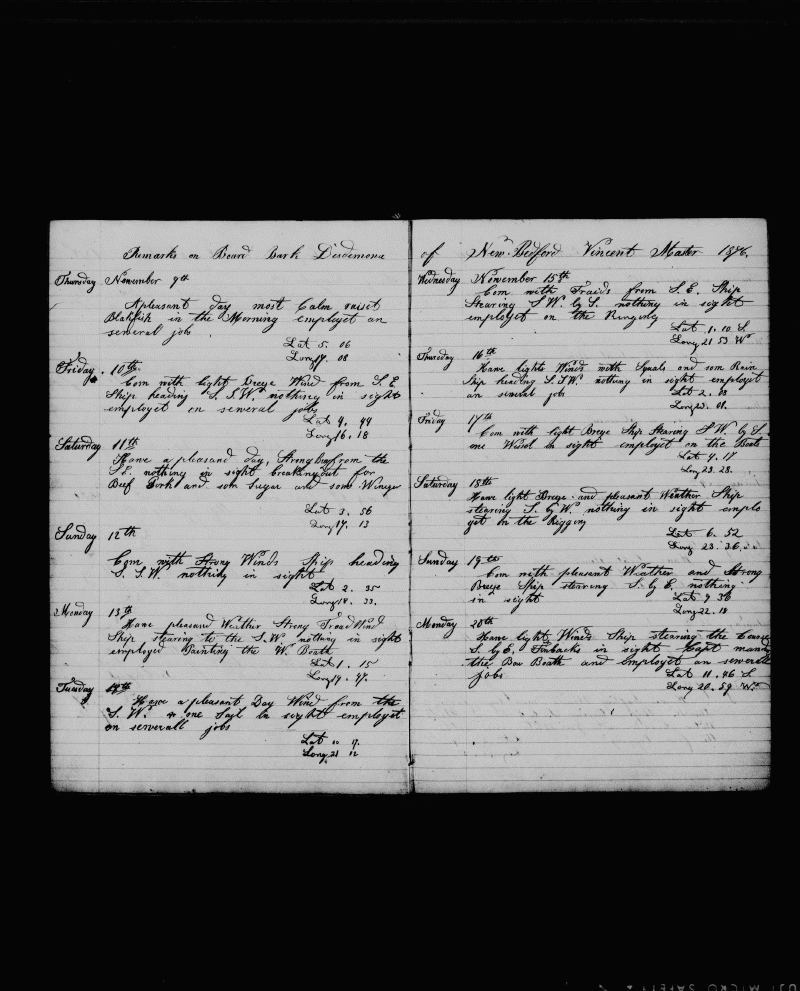 Remarks on Board Bark Desdemona
Thursday November 9th
A pleasant day most Calm raisit
Blakfish in the Morning employet on
several jobs
Lat 5. 06
Long 17. 08
Friday 10th
Com with light Breye Wind from S. E
Ship heading S. S.W. nothing in sight
employet on several jobs
Lat 4. 44
Long 16. 18
Saturday 11th
Have a pleasant day, Strong from the
S.E. nothing in sight breaking out for
Beef Pork and som Sugar and som
Lat 3. 56
Long 17. 13
Sunday 12th
Com with Strong Winds Ship heading
S. S.W. nothing in sight
Lat 2. 35
Long 18. 33.
Monday 13th
Have pleasand Weather Strong Traad Wind
Ship stearing to the S.W. nothing in sight
employed Painting the W. Boath
Lat 1. 15
Long 19. 47.
Tuesday 14th
Have a pleasant Day Wind from the
S. W. one Sayl in sight employet
on severall jobs
Lat 17.
Long 21 12
of New Bedford Vincent Master 1876.
Wednesday November 15th
Com with Traids from S.E. Ship
Stearing S.W. by S. nothing in sight
employet on the Rigging
Lat 1. 10 S
Long 21 53 W
Thursday 16th
Have lights Winds with Squals and som Rain
Ship heading S.S.W. nothing in sight employet
on several jobs
Lat 2. 08
Long 23. 01.
Friday 17th
Com with light Breye Ship Stearing S.W. by S.
one Wessel in sight employet on the Boats
Lat 4. 17
Long 23. 28.
Saturday 18th
Have light Breye and pleasant Weather Ship
stearing S. by W. nothing in sight emplo
yet on the Rigging
Lat 6. 52
Long 23. 36.
Sunday 19th
Com with pleasant Weather and Strong
Breeye Ship stearing S. by E. nothing
in sight
Lat 9 36
Long 22. 18
Monday 20th
Have light Winds Ship stearing the Course
S. by E. Finbacks in sight Capt
the Bow Boath and employet on severall
jobs
Lat 11. 46 S.
Long 20. 59 W.